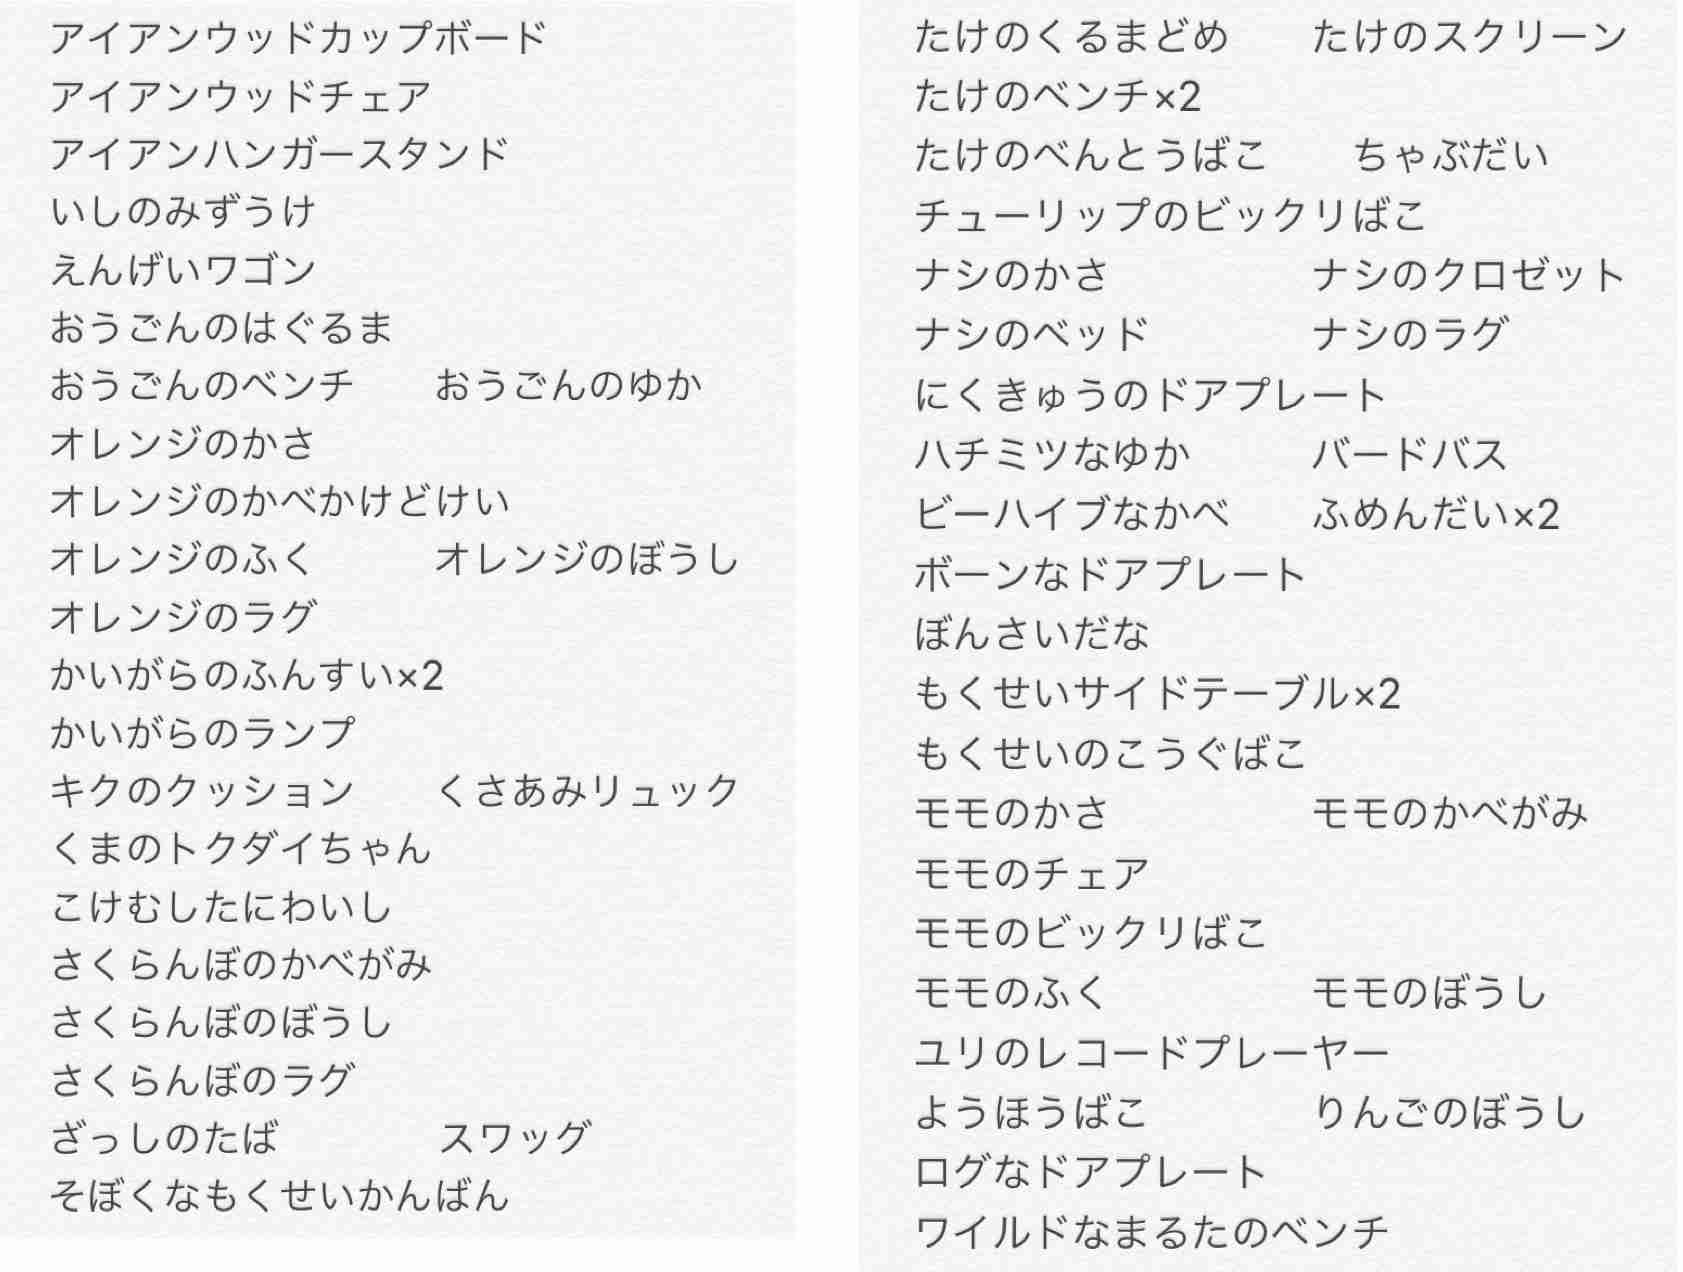 アイアンウッドカップボード
アイアンウッドチェア
アイアンハンガースタンド
いしのみずうけ
えんげいワゴン
おうごんのはぐるま
おうごんのベンチ　　おうごんのゆか
オレンジのかさ
オレンジのかべかけどけい
オレンジのふく　　　オレンジのぼうし
オレンジのラグ
かいがらのふんすい×2
かいがらのランプ
キクのクッション　　くさあみリュック
くまのトクダイちゃん
こけむしたにわいし
さくらんぼのかべがみ
さくらんぼのぼうし
さくらんぼのラグ
ざっしのたば　　　　スワッグ
そぼくなもくせいかんばん
たけのくるまどめ　　たけのスクリーン
たけのベンチ×2
たけのべんとうばこ　　ちゃぶだい
チューリップのビックリばこ
ナシのかさ　　　　　ナシのクロゼット
ナシのベッド　　　　ナシのラグ
にくきゅうのドアプレート
ハチミツなゆか　　　バードバス
ビーハイブなかべ　　ふめんだい×2
ボーンなドアプレート
ぼんさいだな
もくせいサイドテーブル×2
もくせいのこうぐばこ
モモのかさ　　　　　モモのかべがみ
モモのチェア
モモのビックリばこ
モモのふく　　　　　モモのぼうし
ユリのレコードプレーヤー
ようほうばこ　　　　りんごのぼうし
ログなドアプレート
ワイルドなまるたのベンチ